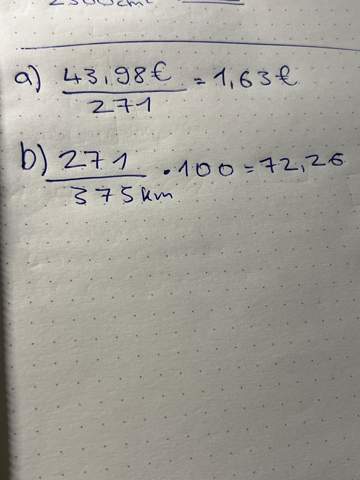 a) 43,98€ / 271 = 1,63€
b) 271 / 375km · 100 = 72,26